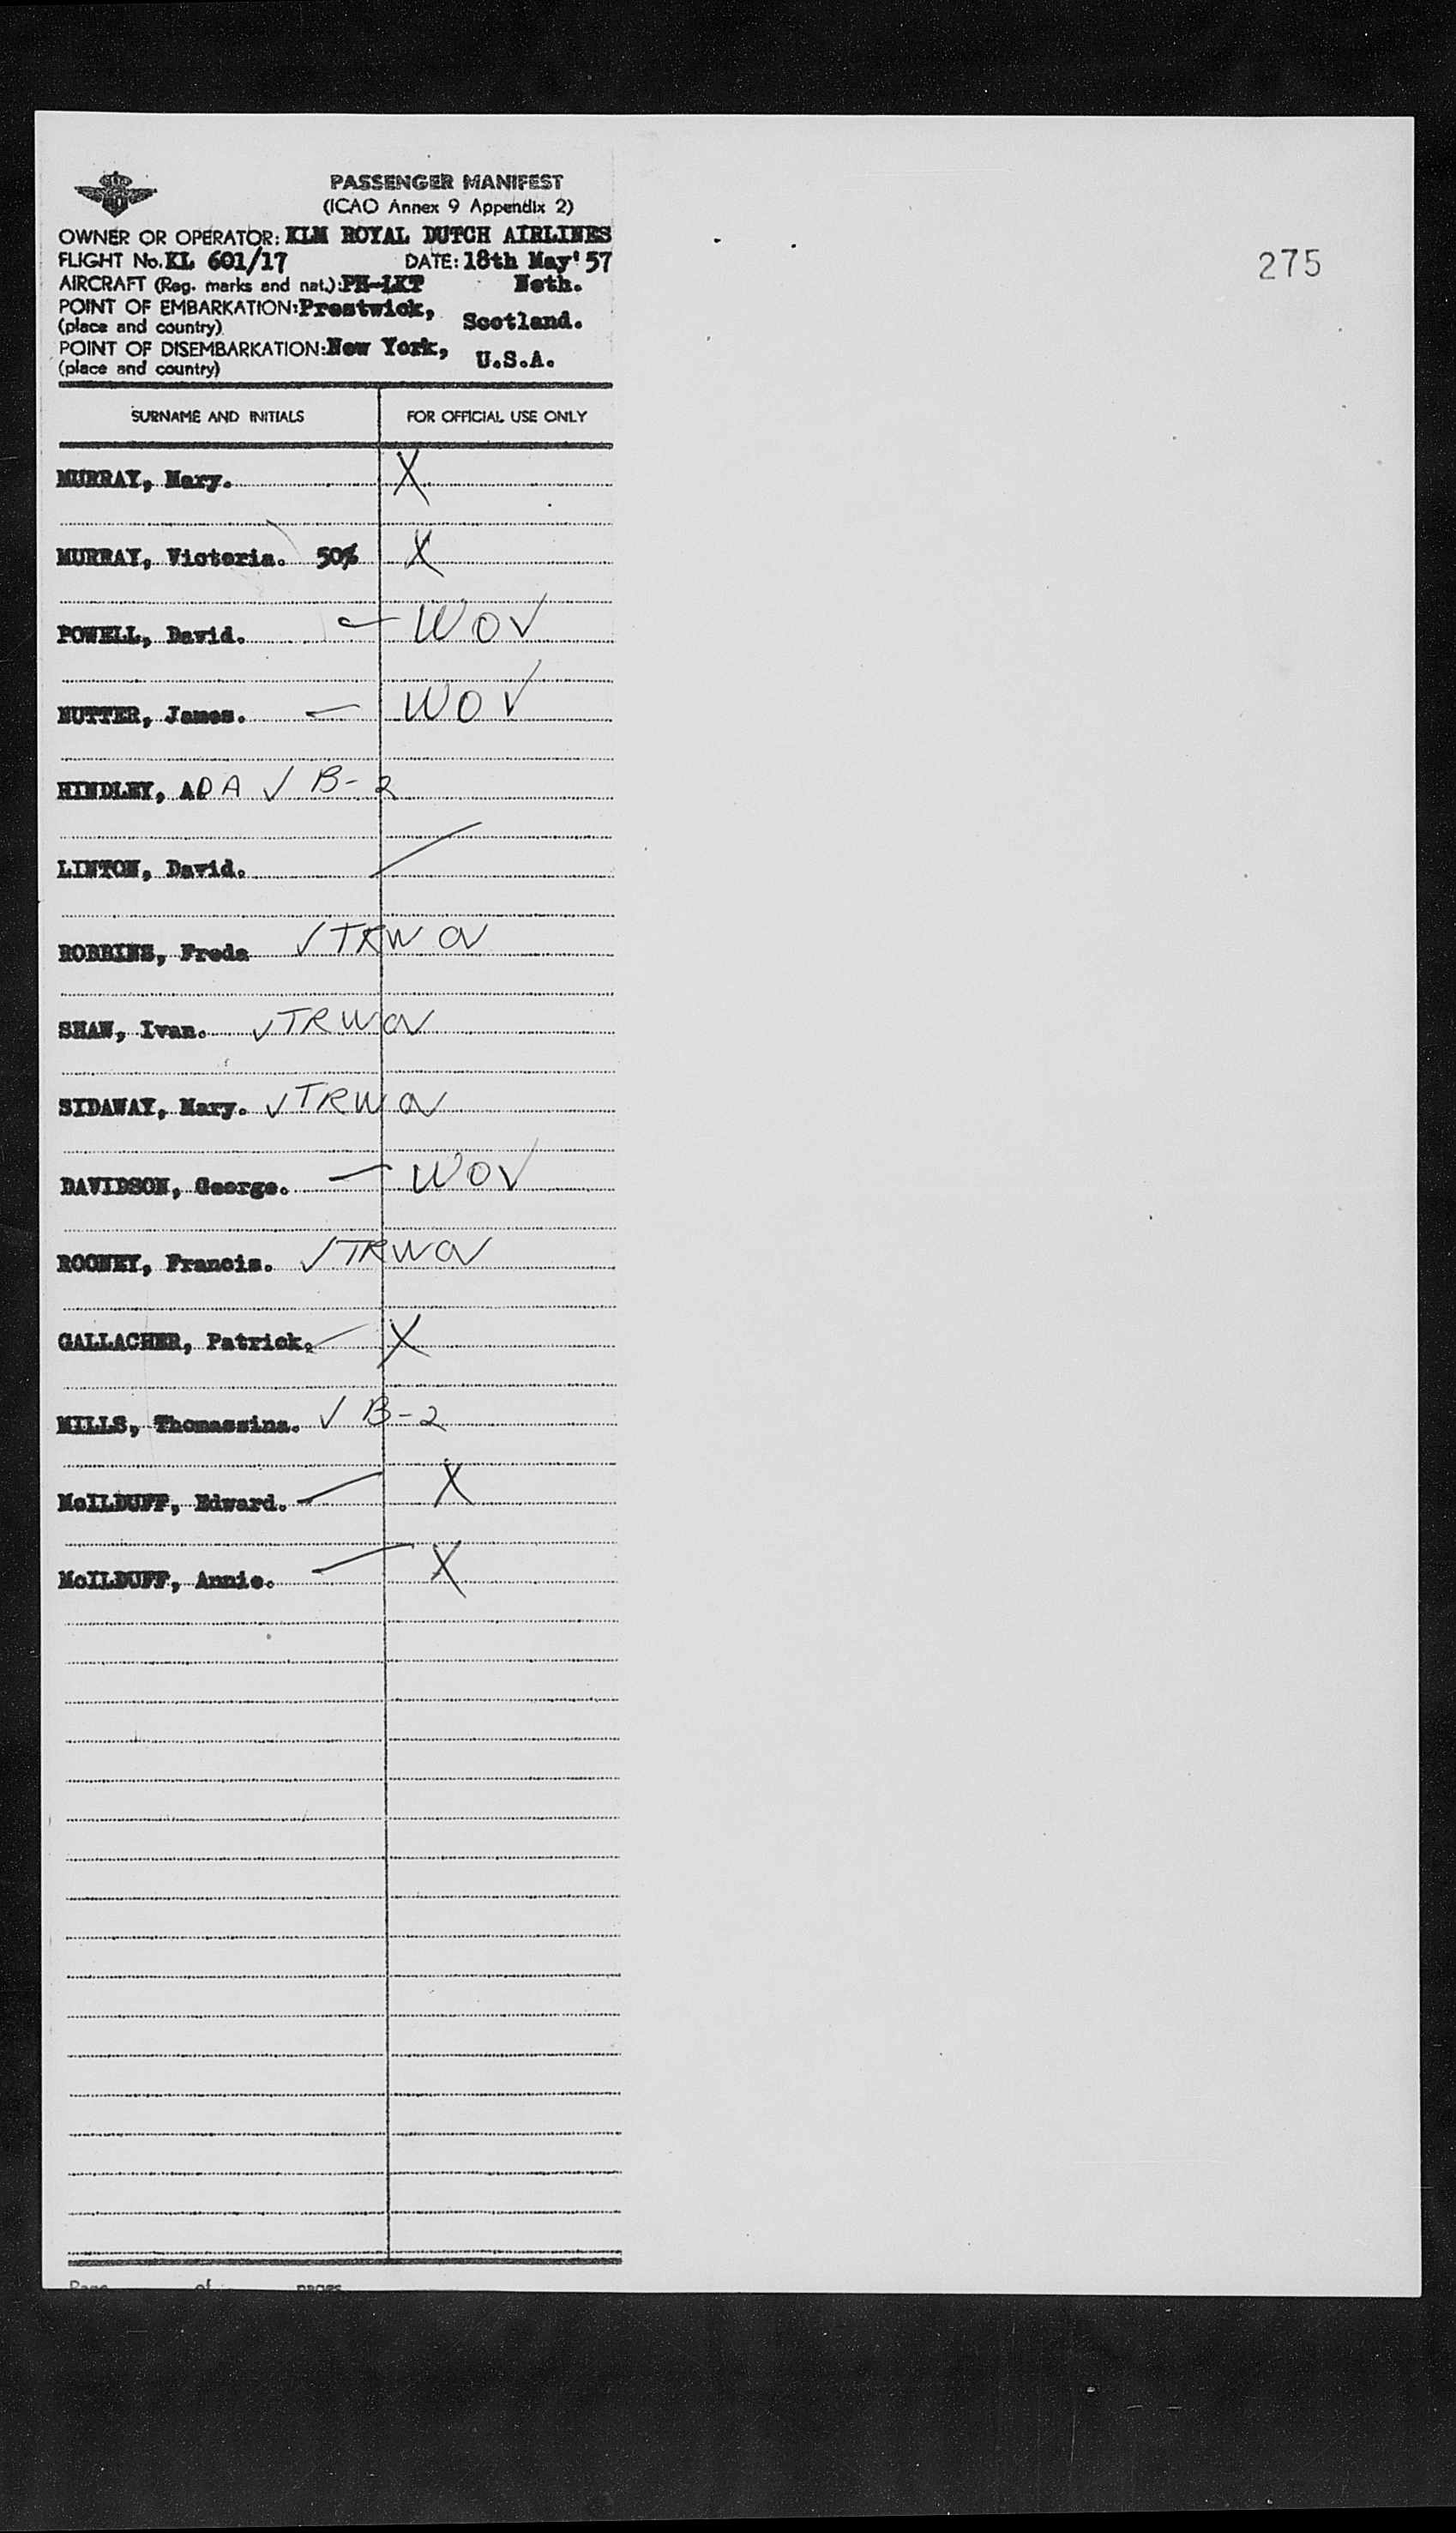 PASSENGER MANIFEST
(ICAO Annex 9 Appendix 2)
OWNER OR OPERATOR: KLM ROYAL DUTCH AIRLINES
FLIGHT No. KL 601/17 DATE: 18th May' 57
275
AIRCRAFT (Reg. marks and nat.): PH-LKT Neth.
POINT OF EMBARKATION: Prestwick, Scotland.
(place and country)
POINT OF DISEMBARKATION: New York, U.S.A.
(place and country)
SURNAME AND INITIALS FOR OFFICIAL USE ONLY
MURRAY, Mary. X
MURRAY, Victoria. 50% X
POWELL, David. — WOV
NUTTER, James. — WOV
HINDLEY, ADA ✓ B-2
LINTON, David. /
ROBBINS, Freda ✓ TRWOV
SHAW, Ivan. ✓ TRWOV
SIDAWAY, Mary. ✓ TRWOV
DAVIDSON, George. — WOV
ROONEY, Francis. ✓ TRWOV
GALLACHER, Patrick. — X
MILLS, Thomassina. ✓ B-2
McILDUFF, Edward. — X
McILDUFF, Annie. — X
Page of pages